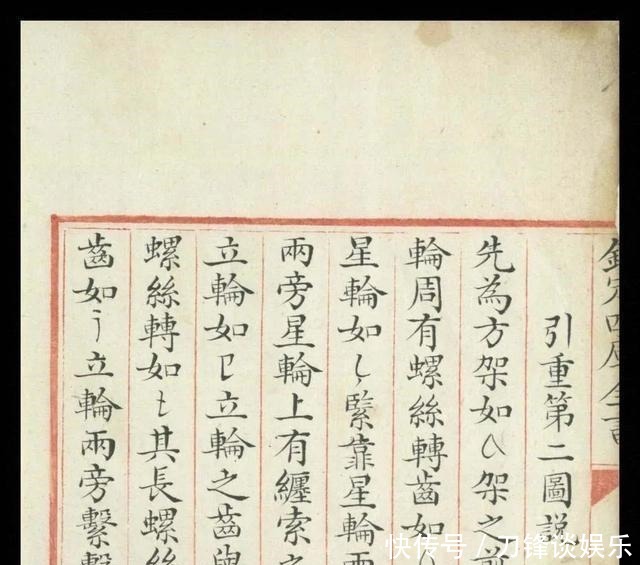 欽定四庫全書
引重第二圖說
先為方架如㇏架之前
輪周有螺絲轉齒如
星輪如㇄緊靠星輪兩
兩旁星輪上有纏索之
立輪如㔾立輪之齒與
螺絲轉如㇙其長螺絲
齒如丂立輪兩旁繫
快传号／刀锋谈娱乐